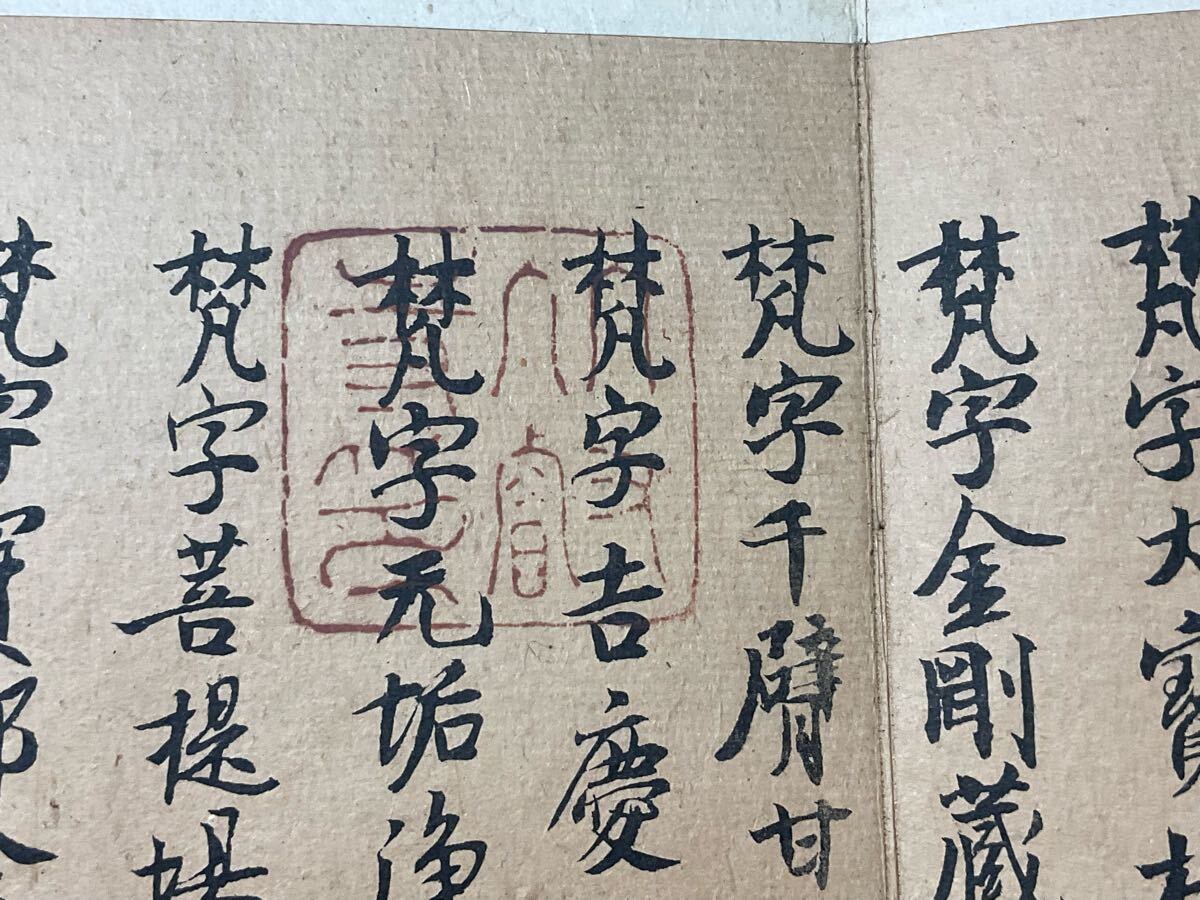 梵字大寶
梵字金剛蔵
梵字千臂甘
梵字吉慶
梵字无垢浄
梵字菩提場
梵字寶